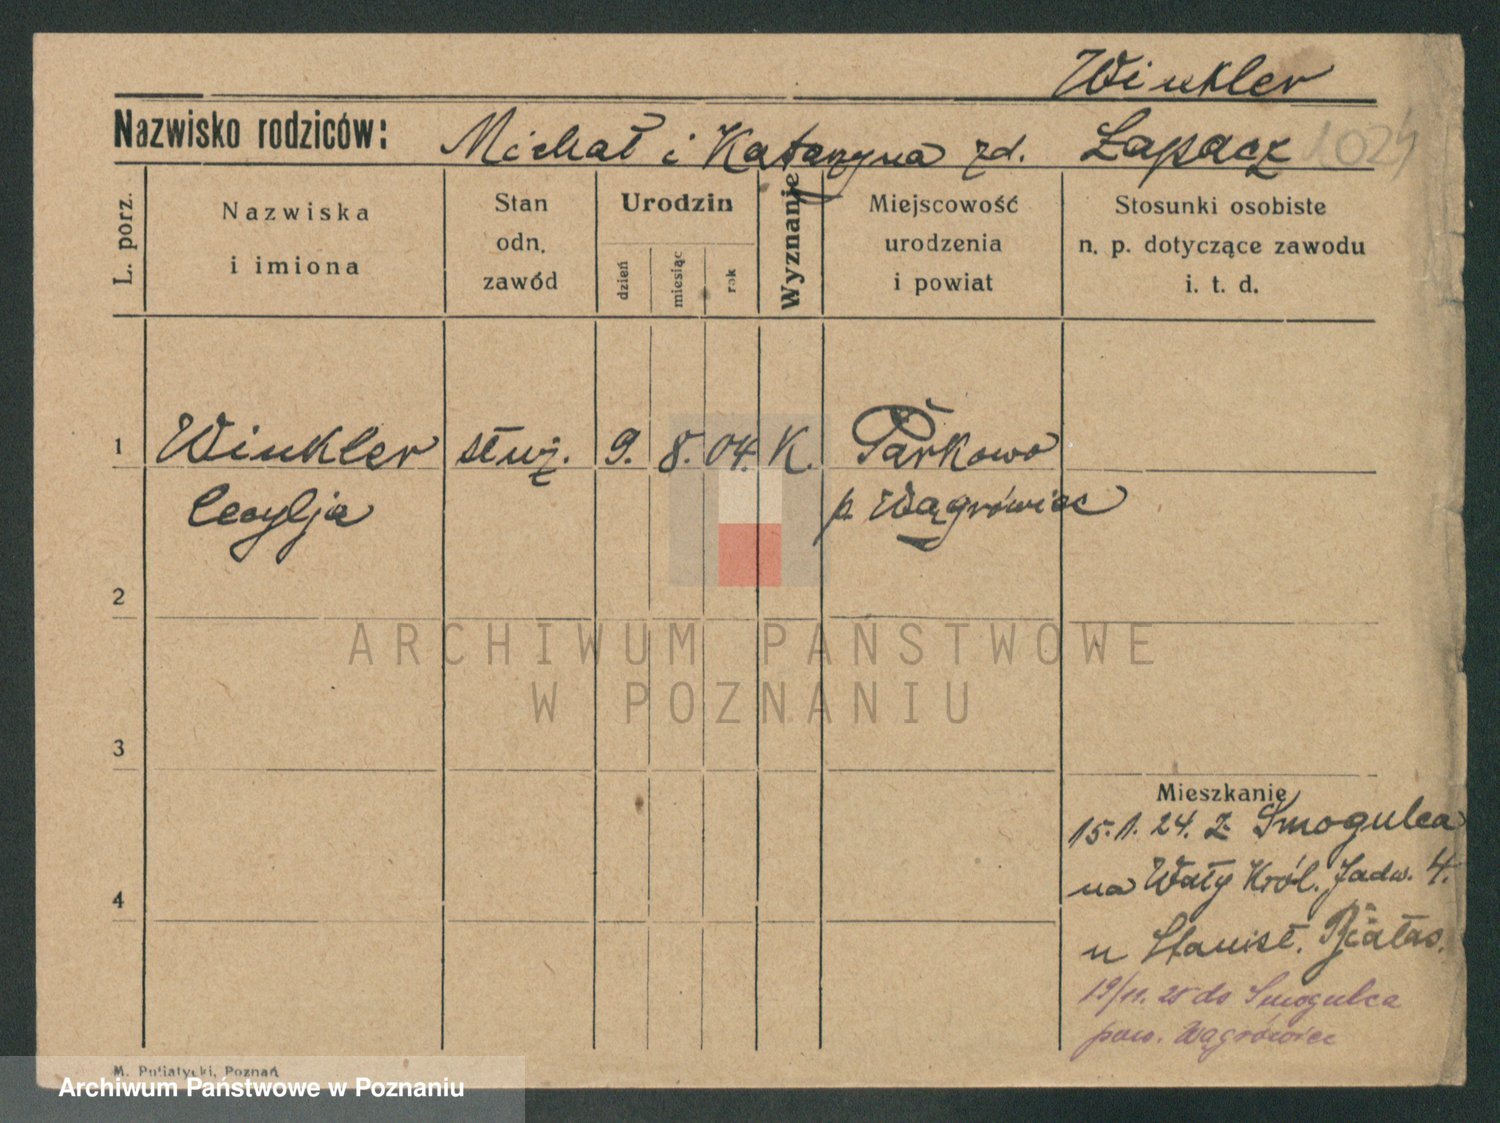 Winkler
Nazwisko rodziców: Michał i Katarzyna zd. Łapacz 1024
L. porz.
Nazwiska
i imiona
Stan
odn.
zawód
Urodzin
dzień
miesiąc
rok
Wyznanie
Miejscowość
urodzenia
i powiat
Stosunki osobiste
n. p. dotyczące zawodu
i. t. d.
1 Winkler służ. 9. 8. 04. K. Parkowo
Cecylja p. Wągrówiec
2
ARCHIWUM PAŃSTWOWE
W POZNANIU
3
Mieszkanie
15.1.24. z Smogulca
na Wały Król. Jadw. 4.
4
u Stanisł.
19/11. 25 do Smogulca
pow. Wągrówiec
M. Putiatycki, Poznań
Archiwum Państwowe w Poznaniu